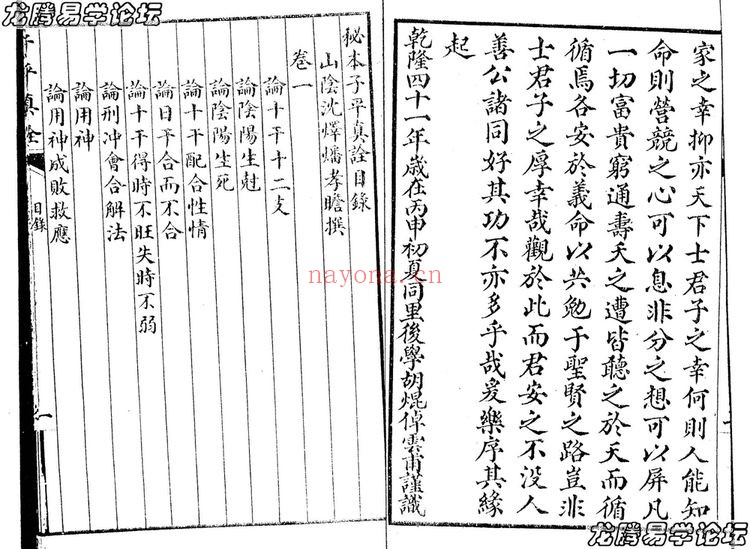 龙腾易学论坛
家之幸抑亦天下士君子之幸何則人能知
命則營競之心可以息非分之想可以屏凡
一切富貴窮通壽夭之遭皆聽之於天而循
循焉各安於義命以共勉于聖賢之路豈非
士君子之厚幸哉觀於此而君安之不没人
善公諸同好其功不亦多乎哉爰樂序其緣
起
乾隆四十一年歲在丙申初夏同里後學胡焜倬雲甫謹識
秘本子平真詮目錄
山陰沈燡燔孝瞻撰
卷一
論十干十二支
論陰陽生尅
論陰陽生死
論十干配合性情
論日干合而不合
論十干得時不旺失時不弱
論刑冲會合解法
論用神
論用神成敗救應
子平真詮
目錄
一
nayona.cn
龙腾易学论坛